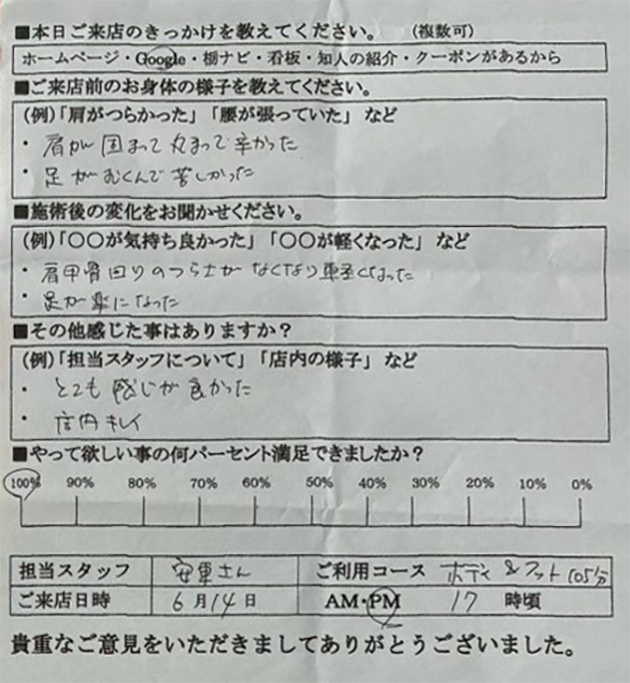 ■本日ご来店のきっかけを教えてください。（複数可）
ホームページ・Google・栃ナビ・看板・知人の紹介・クーポンがあるから
■ご来店前のお身体の様子を教えてください。
(例)「肩がつらかった」「腰が張っていた」など
・肩が固まって丸まって辛かった
・足がむくんで苦しかった
■施術後の変化をお聞かせください。
(例)「〇〇が気持ち良かった」「〇〇が軽くなった」など
・肩甲骨回りのつらさがなくなり軽くなった
・足が楽になった
■その他感じた事はありますか？
(例)「担当スタッフについて」「店内の様子」など
・とても感じが良かった
・店内キレイ
■やって欲しい事の何パーセント満足できましたか？
100% 90% 80% 70% 60% 50% 40% 30% 20% 10% 0%
担当スタッフ さん ご利用コース ボディ&フット105分
ご来店日時 6月14日 AM・PM 17時頃
貴重なご意見をいただきましてありがとうございました。